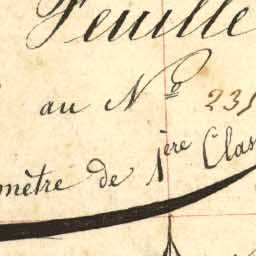 Feuille
au N° 235
mètre de 1ère Clas